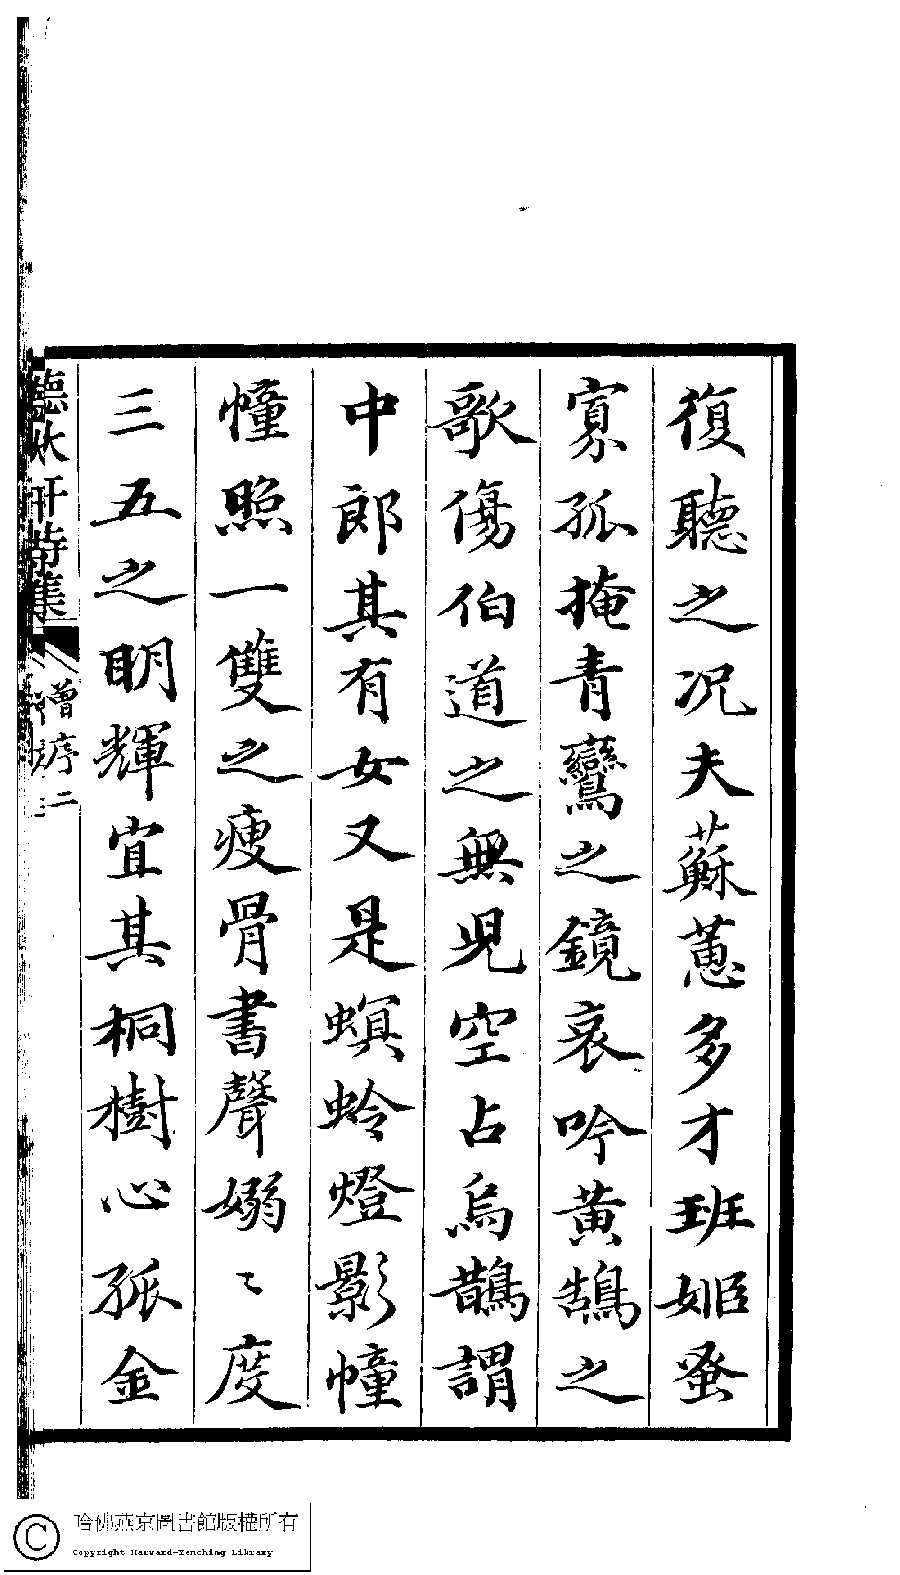 復聽之況夫蘇蕙多才班姬蚤
寡孤掩青鸞之鏡哀吟黃鵠之
歌傷伯道之無児空占烏鵲謂
中郎其有女又是螟蛉燈影幢
幢照一雙之瘦骨書聲嫋〻度
三五之明輝宜其桐樹心孤金
聽秋軒詩集
贈序
二
哈佛燕京圖書館版權所有
Copyright Harvard-Yenching Library